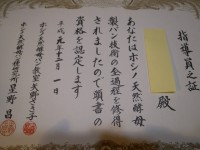 指導員之証
殿
あなたはホシノ天然酵母
製パン技術の全過程を修得
されましたので頭書の
資格を認定します
平成元年十二月一日
ホシノ天然酵母パン教室 矢野さき子
ホシノ天然酵母パン種研究所 星野昌